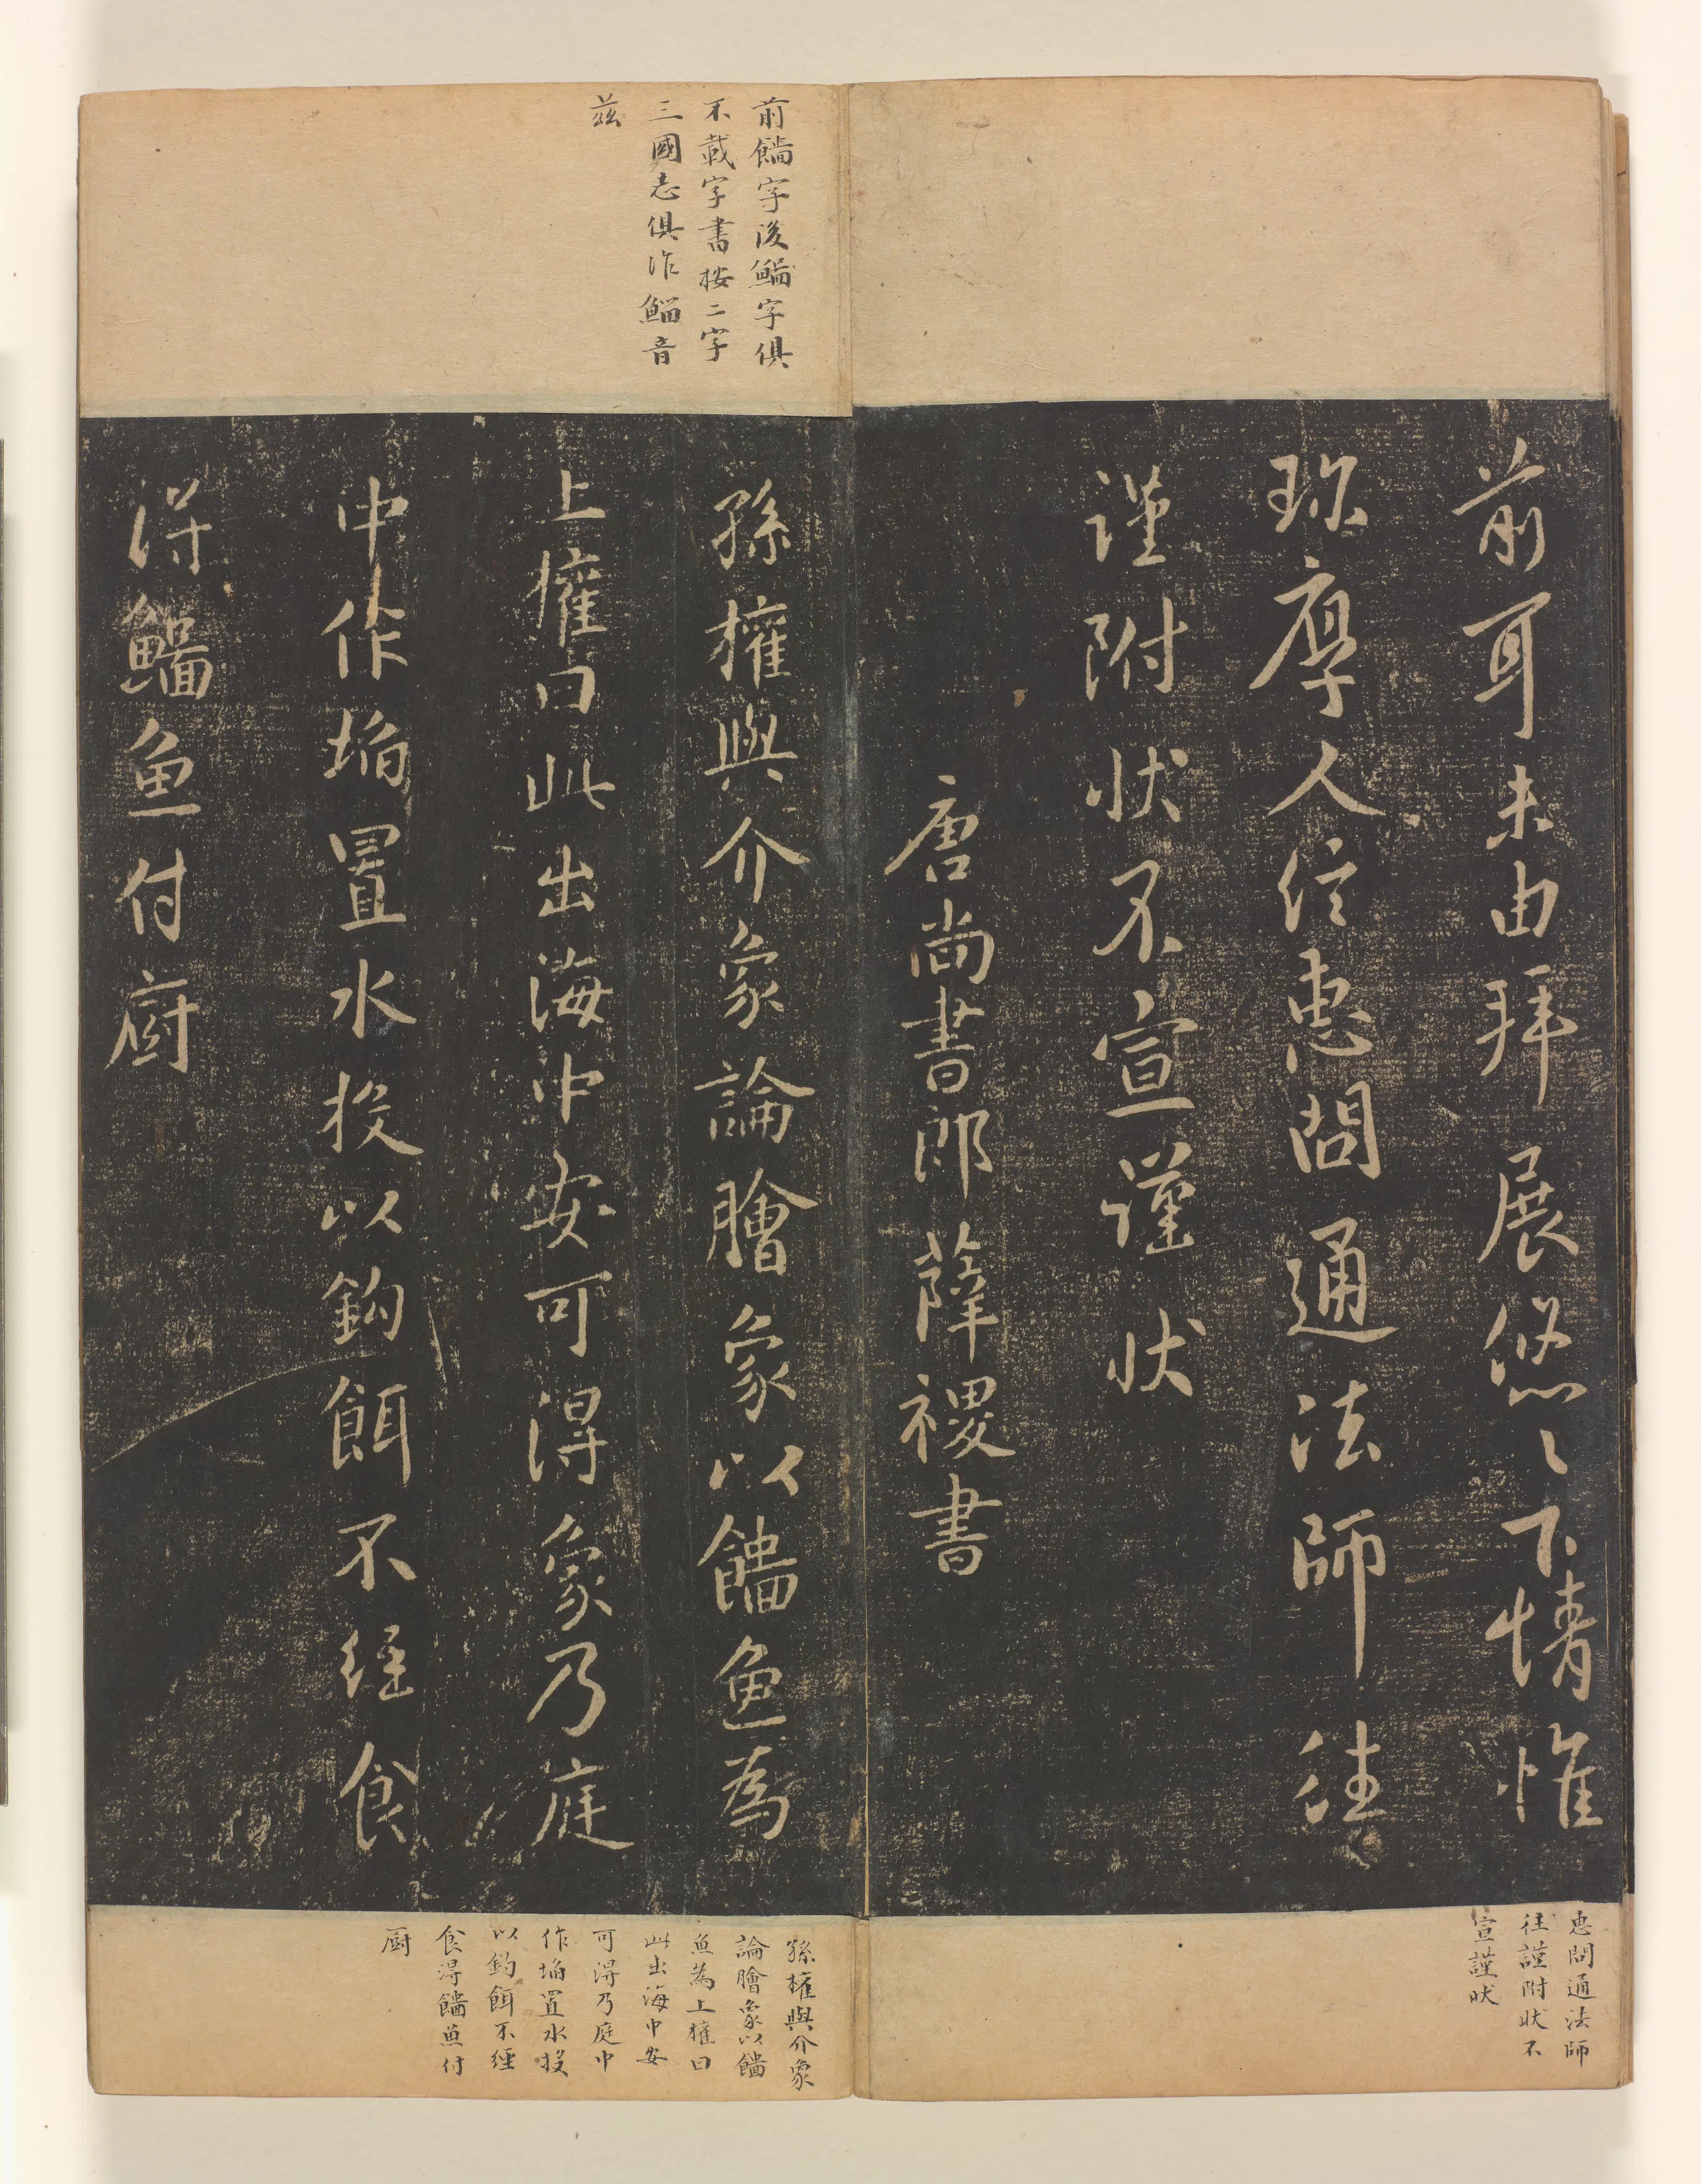 前耳未由拜展悠〻下情惟
珎厚人信惠問通法師往
謹附状不宣謹状
唐尚書郎薛稷書
惠問通法師
往謹附状不
宣謹状
前䭡字後鯔字俱
不載字書按二字
三國志俱作鯔音
茲
孫權與介象論膾象以䭡魚為
上權曰此出海中安可得象乃庭
中作埳置水投以鈎餌不経食
得鯔魚付廚
孫權與介象
論膾象以䭡
魚為上權曰
此出海中安
可得乃庭中
作埳置水投
以鈎餌不經
食得䭡魚付
廚